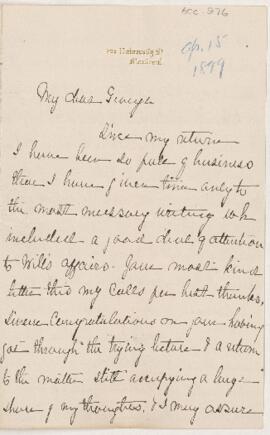 acc-876
University St
Montreal
Ap. 15
1899
My dear George
Since my return
I have been so full of business
that I have given time only to
the most necessary writing wh
included a good deal of attention
to Will's affairs. Your most kind
letter this my calls for best thanks,
Sincere Congratulations on your having
got through "the trying lecture" & a return
to the matter still occupying a large
share of my thoughts. & I may assure